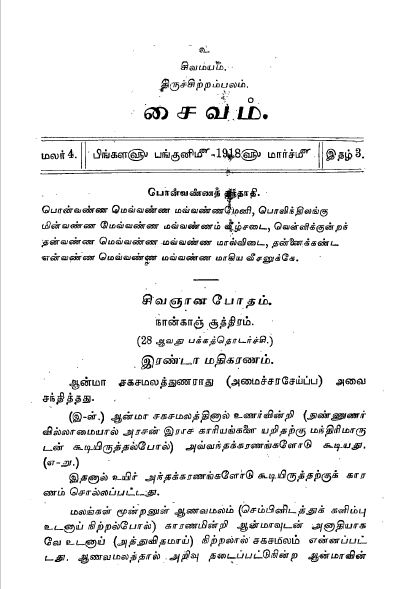 உ
சிவமயம்.
திருச்சிற்றம்பலம்.
சைவம்.
மலர் 4. பிங்கள௵ பங்குனிமீ-1918௵ மார்ச்மீ இதழ் 3.
பொன்வண்ணத் தந்தாதி.
பொன்வண்ண மெவ்வண்ண மவ்வண்ணமேனி, பொலிந்திலங்கு
மின்வண்ண மேவ்வண்ண மவ்வண்ணம் வீழ்சடை, வெள்ளிக்குன்றந்
தன்வண்ண மெவ்வண்ண மவ்வண்ண மால்விடை, தன்னைக்கண்ட
என்வண்ண மெவ்வண்ண மவ்வண்ண மாகிய வீசனுக்கே.
சிவஞான போதம்.
நான்காஞ் சூத்திரம்.
(28 ஆவது பக்கத்தொடர்ச்சி.)
இரண்டா மதிகரணம்.
ஆன்மா சகசமலத்துணராது (அமைச்சரசேய்ப்ப) அவை
சந்தித்தது.
(இ-ள்.) ஆன்மா சகசமலத்தினால் உணர்வின்றி (நுண்ணுணர்
வில்லாமையால் அரசன் இராச காரியங்களை யறிதற்கு மந்திரிமாரு
டன் கூடியிருத்தல்போல்) அவ்வந்தக்கரணங்களோடு கூடியது.
(எ-று.)
இதனால் உயிர் அந்தக்கரணங்களோடு கூடியிருத்தற்குக் கார
ணம் சொல்லப்பட்டது.
மலங்கள் மூன்றனுள் ஆணவமலம் (செம்பினிடத்துக் களிம்பு
உடனாய் நிற்றல்போல்) காரணமின்றி ஆன்மாவுடன் அனாதியாக
வே உடனாய் (அத்துவிதமாய்) நிற்றலால் சகசமலம் என்னப்பட்
டது. ஆணவமலத்தால் அறிவு தடைப்பட்டுகின்ற ஆன்மாவின்